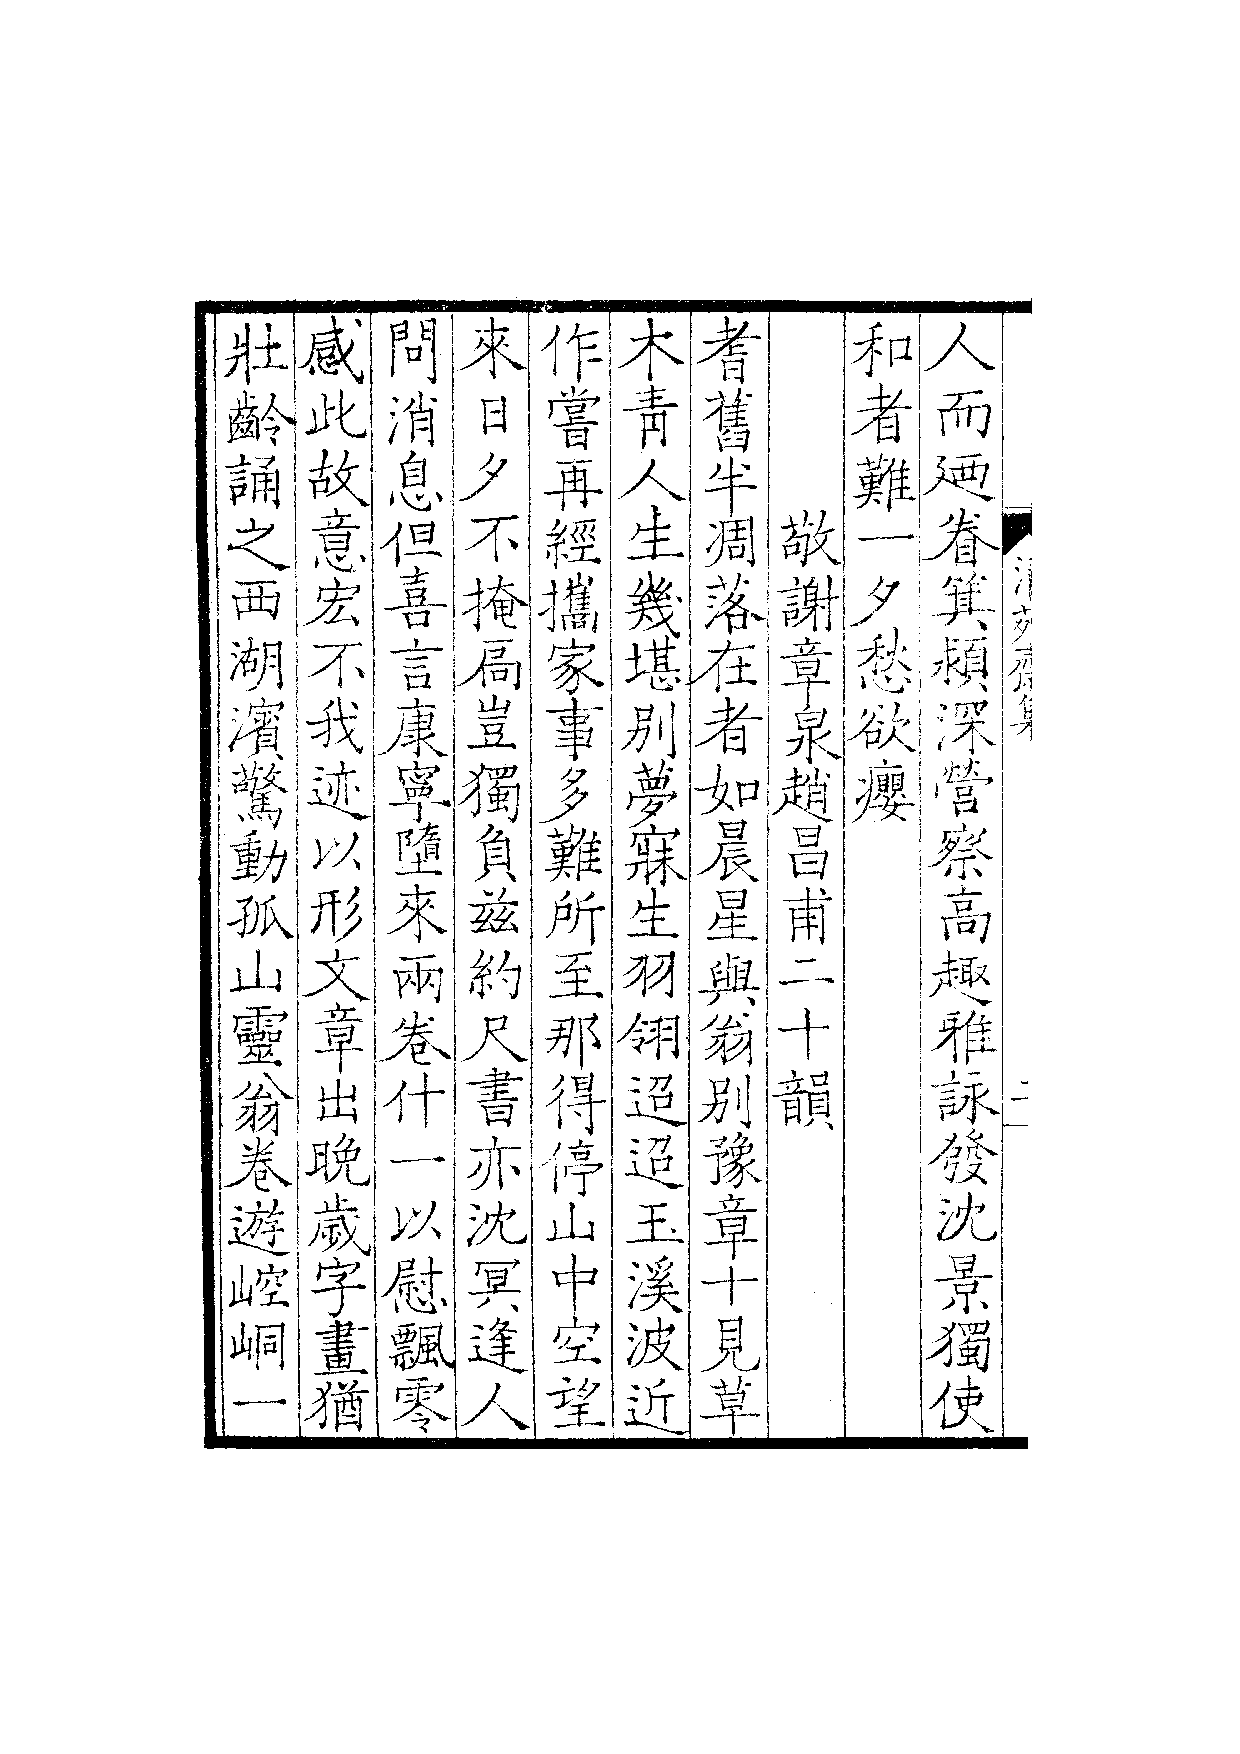 人而廼眷箕潁深營察高趣雅詠發沈景獨使
和者難一夕愁欲癭
敬謝章泉趙昌甫二十韻
耆舊半凋落在者如晨星與翁別豫章十見草
木青人生幾堪別夢寐生羽翎迢迢玉溪波近
作嘗再經攜家事多難所至那得停山中空望
來日夕不掩扃豈獨負兹約尺書亦沈冥逢人
問消息但喜言康寧墮來兩卷什一以慰飄零
感此故意宏不我迹以形文章出晚歲字畫猶
壯齡誦之西湖濱驚動孤山靈翁卷遊崆峒一